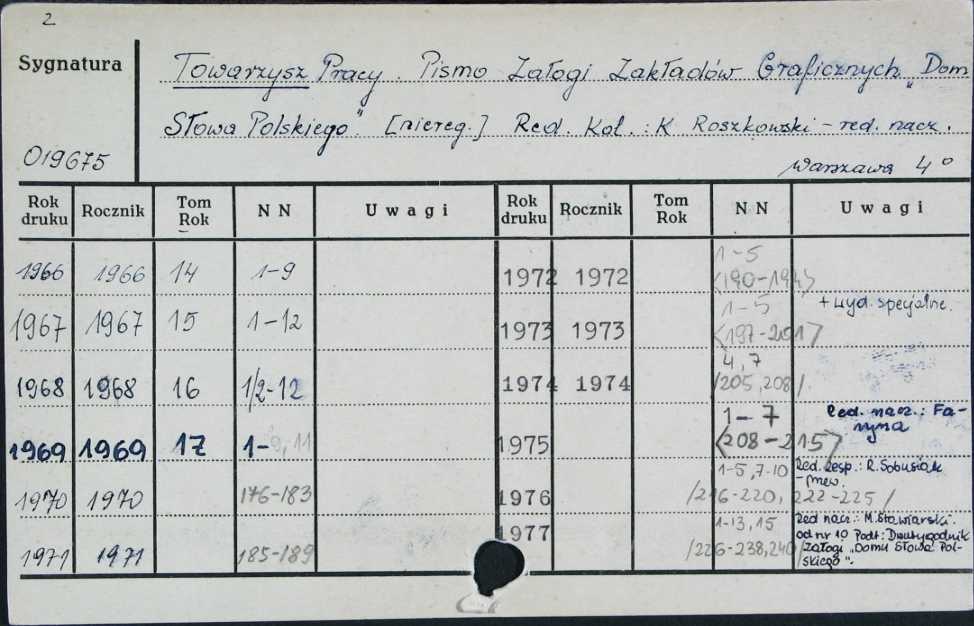 2
Sygnatura
Towarzysz Pracy. Pismo Załogi Zakładów Graficznych „Dom
Słowa Polskiego". [niereg.] Red. Kol.: K Roszkowski – red. nacz.
019675
Warszawa 4°
Rok druku Rocznik Tom Rok NN Uwagi Rok druku Rocznik Tom Rok NN Uwagi
1966 1966 14 1-9
1967 1967 15 1-12
1968 1968 16 1/2-12
1969 1969 17 1-9, 11
1970 1970 176-183
1971 1971 185-189
1972 1972 1-5 <190-194>
1973 1973 1-5 <197-201> + wyd. specjalne.
1974 1974 4, 7 /205, 208/
1975 1-7 <208-215> Red. nacz.: Fa-
ryna
1976 1-5, 7-10 /216-220, 222-225/ Red. zesp.: R. Sobusiak
1977 1-13, 15 /226-238, 240/ Red nacz.: M. Stawiarski.
od nr 10 Podt: Dwutygodnik
załogi „Domu Słowa Pol-
skiego".